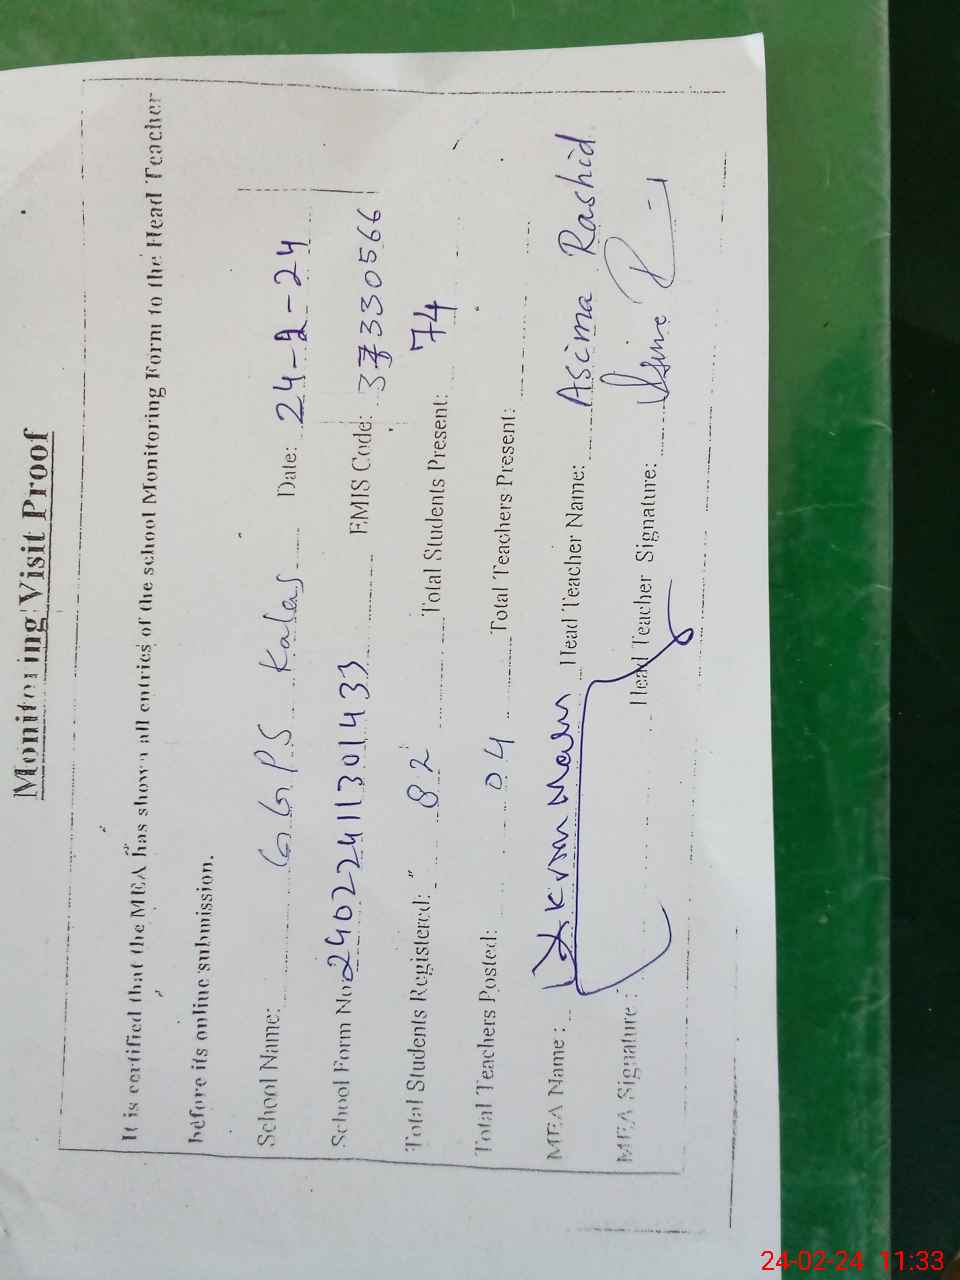 Monitoring Visit Proof
It is certified that the MEA has shown all entries of the school Monitoring Form to the Head Teacher
before its online submission.
School Name: GGPS Kalas Date: 24-2-24
School Form No: 24022411301433 EMIS Code: 37330566
Total Students Registered: 82 Total Students Present: 74
Total Teachers Posted: 04 Total Teachers Present:
MEA Name: Head Teacher Name: Asima Rashid
MEA Signature: Head Teacher Signature:
24-02-24 11:33